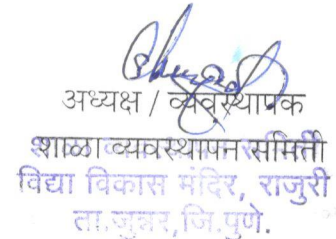 अध्यक्ष / व्यवस्थापक
शाळा व्यवस्थापन समिती
विद्या विकास मंदिर, राजुरी
ता.जुन्नर,जि.पुणे.